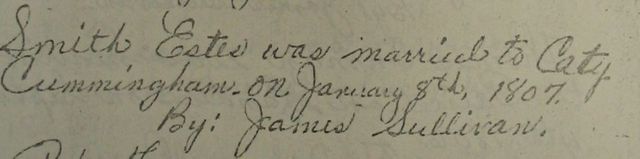 Smith Estes was married to Caty
Cummingham. on January 8th, 1807.
By: James Sullivan.